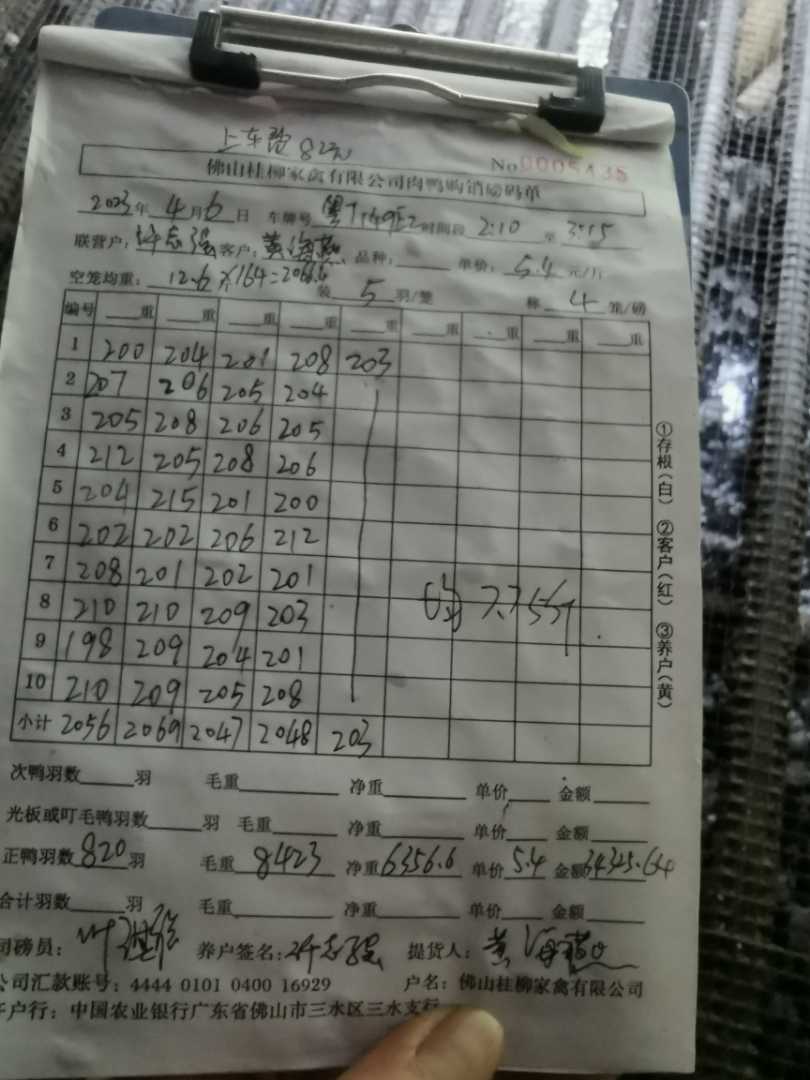 上车
No 0005435
佛山桂柳家禽有限公司肉鸭购销磅码单
2023年 4月6日 车牌号 时间段 2:10 至 3:15
联营户: 许志强 客户: 黄海燕 品种: 单价: 5.4 元/斤
空笼均重: 12.6×164=2066.4 装 5 羽/笼 称 4 笼/磅
编号 重 重 重 重 重 重 重 重 重
1 200 204 201 208 203
2 207 206 205 204
3 205 208 206 205
4 212 205 208 206
5 204 215 201 200
6 202 202 206 212
7 208 201 202 201
8 210 210 209 203
均 7.75斤
9 198 209 204 201
10 210 209 205 208
小计 2056 2069 2047 2048 203
次鸭羽数 羽 毛重 净重 单价 金额
光板或叮毛鸭羽数 羽 毛重 净重 单价 金额
正鸭羽数 820 羽 毛重 8423 净重 6356.6 单价 5.4 金额 34325.64
合计羽数 羽 毛重 净重 单价 金额
司磅员: 养户签名: 许志强 提货人: 黄海燕
公司汇款账号: 4444 0101 0400 16929 户名: 佛山桂柳家禽有限公司
开户行: 中国农业银行广东省佛山市三水区三水支行
①存根(白) ②客户(红) ③养户(黄)